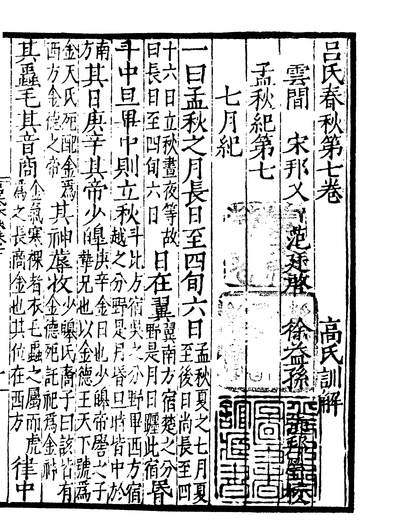 呂氏春秋第七卷 高氏訓解
雲間 宋邦乂 徐益孫 校
孟秋紀第七
七月紀
一曰孟秋之月長日至四旬六日 孟秋夏之七月夏至後日尚長至四
十六日立秋晝夜等故曰長日至四旬六日 日在翼 翼南方宿楚之分野是月日躔此宿 昏
斗中旦畢中則立秋 斗北方宿吳之分野畢西方宿越之分野是月昏旦時皆中於
南方 其日庚辛其帝少皞 庚辛金日也少皞帝嚳之子摯兄也以金德王天下號爲
金天氏死配金爲西方金德之帝 其神蓐收 少皞氏裔子曰該皆有金德死託祀爲金神
其蟲毛其音商 金氣寒裸者衣毛蟲之屬而虎爲之長商金也其位在西方 律中